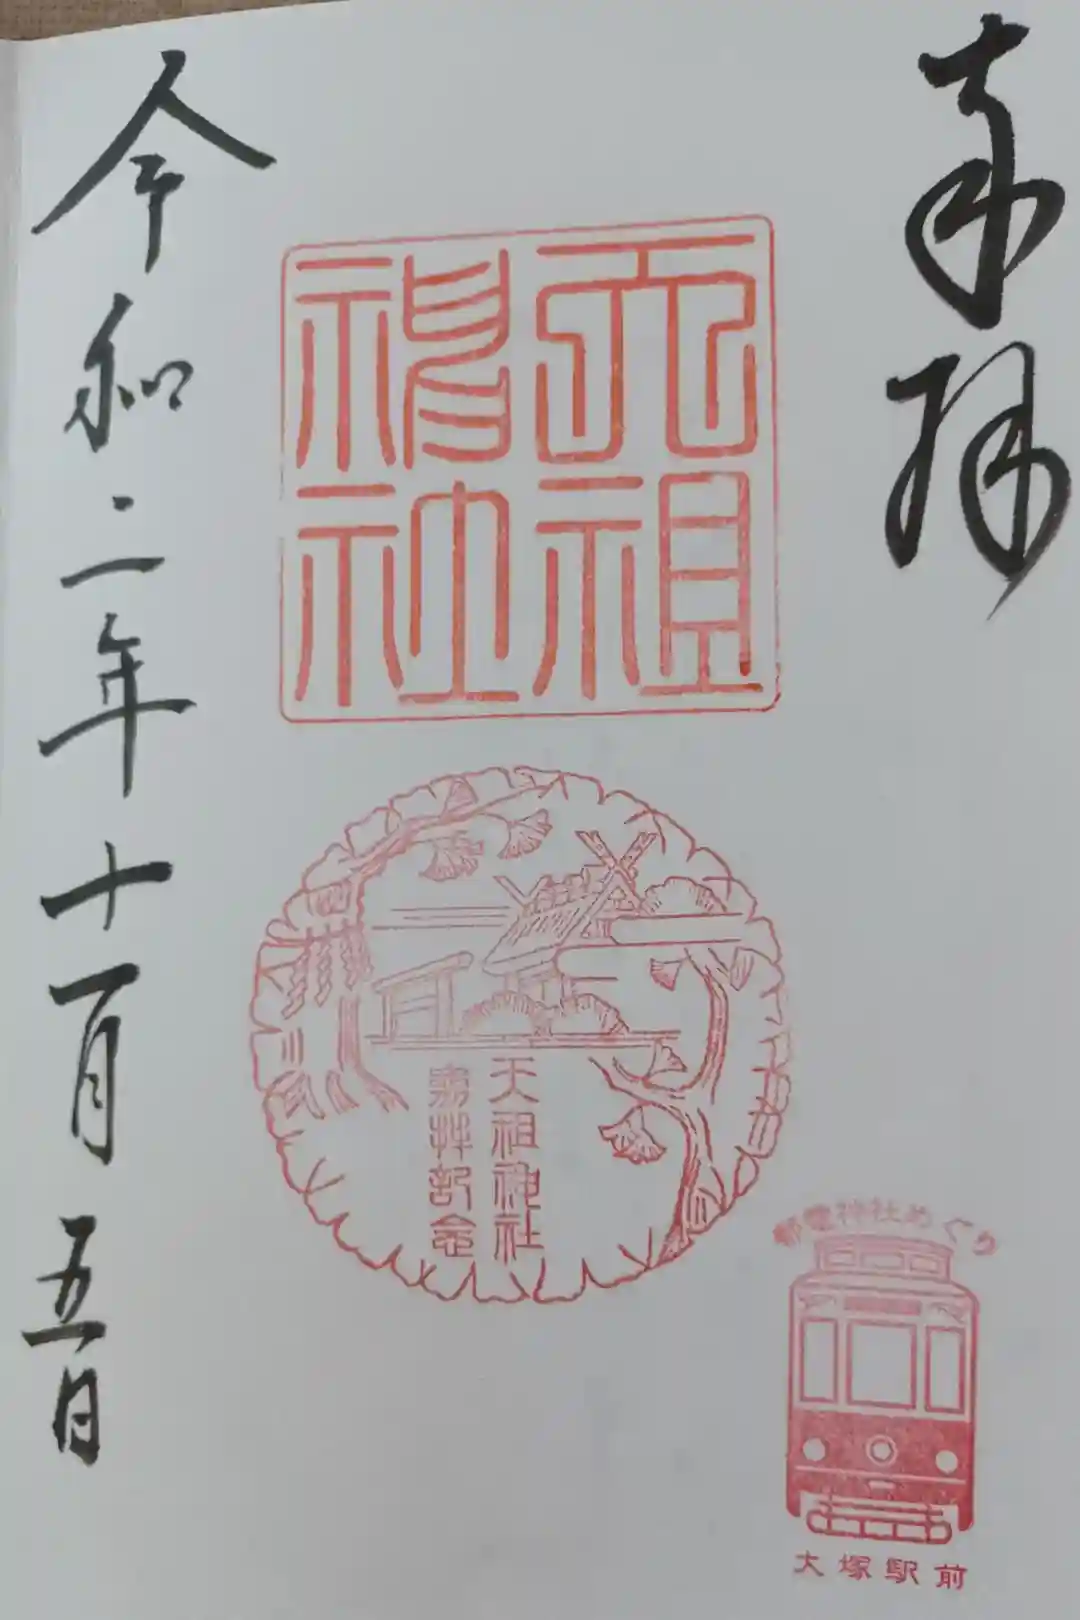 奉拝
天祖
神社
天祖神社
参拝記念
都電神社めぐり
大塚駅前
令和二年十一月五日